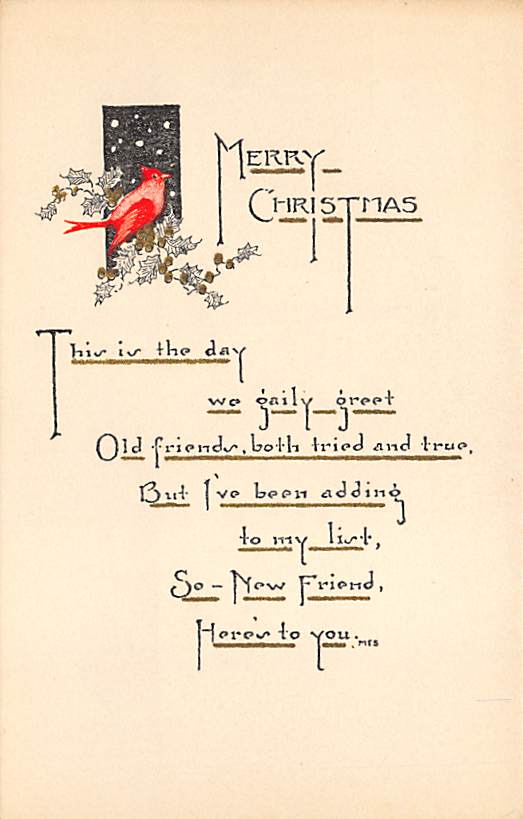 MERRY
CHRISTMAS
This is the day
we gaily greet
Old friends, both tried and true,
But I've been adding
to my list,
So - New Friend,
Here's to you. MES